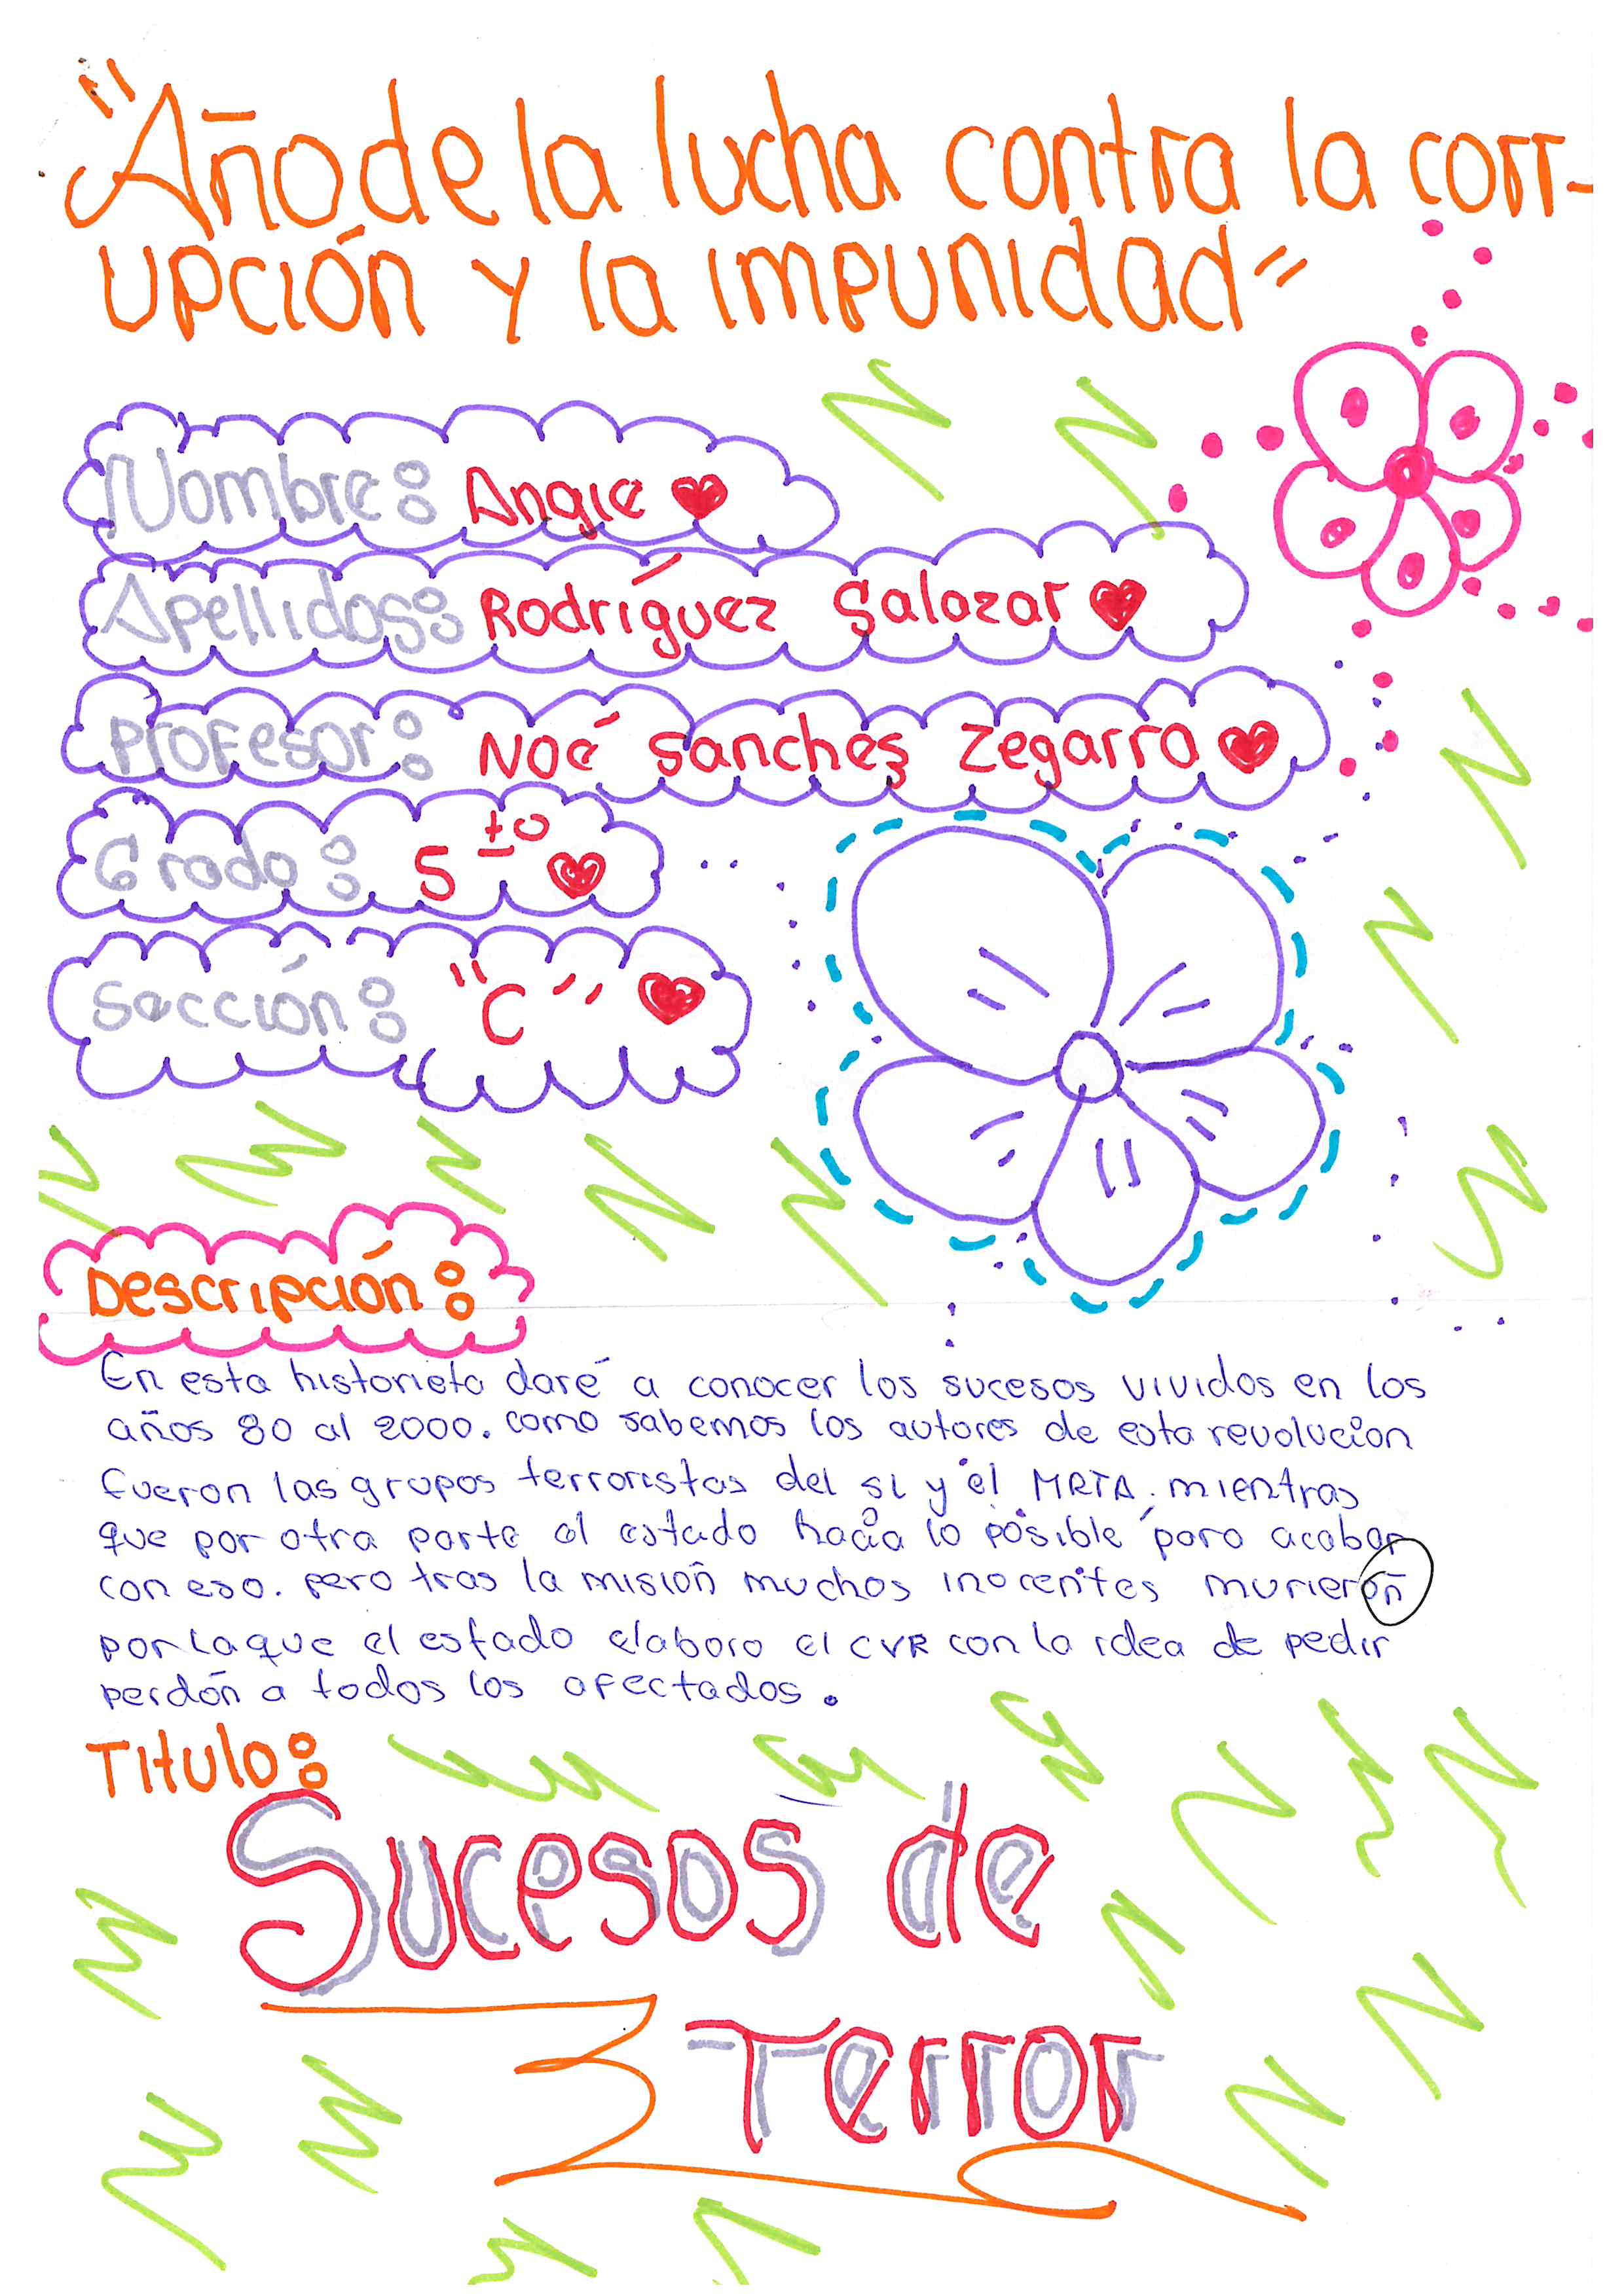 "Año de la lucha contra la corr-
upción y la impunidad"
Nombre: Angie
Apellidos: Rodríguez Salazar
Profesor: Noé Sanches Zegarra
Grado: 5to
Sección: "C"
Descripción:
En esta historieta daré a conocer los sucesos vividos en los
años 80 al 2000. como sabemos los autores de esta revolucion
fueron las grupos terroristas del SL y el MRTA. mientras
que por otra parte el estado hacia lo posible para acabar
con eso. pero tras la misión muchos inocentes murieron
por la que el estado elaboro el CVR con la idea de pedir
perdón a todos los afectados.
Titulo:
Sucesos de
Terror